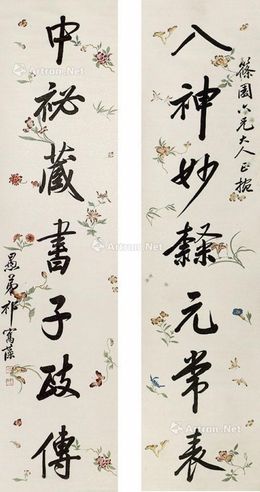 篠園六兄大人正腕
入神妙隸元常表
中祕藏書子政傳
愚弟祁寯藻
Artron.Net
Artron.Net